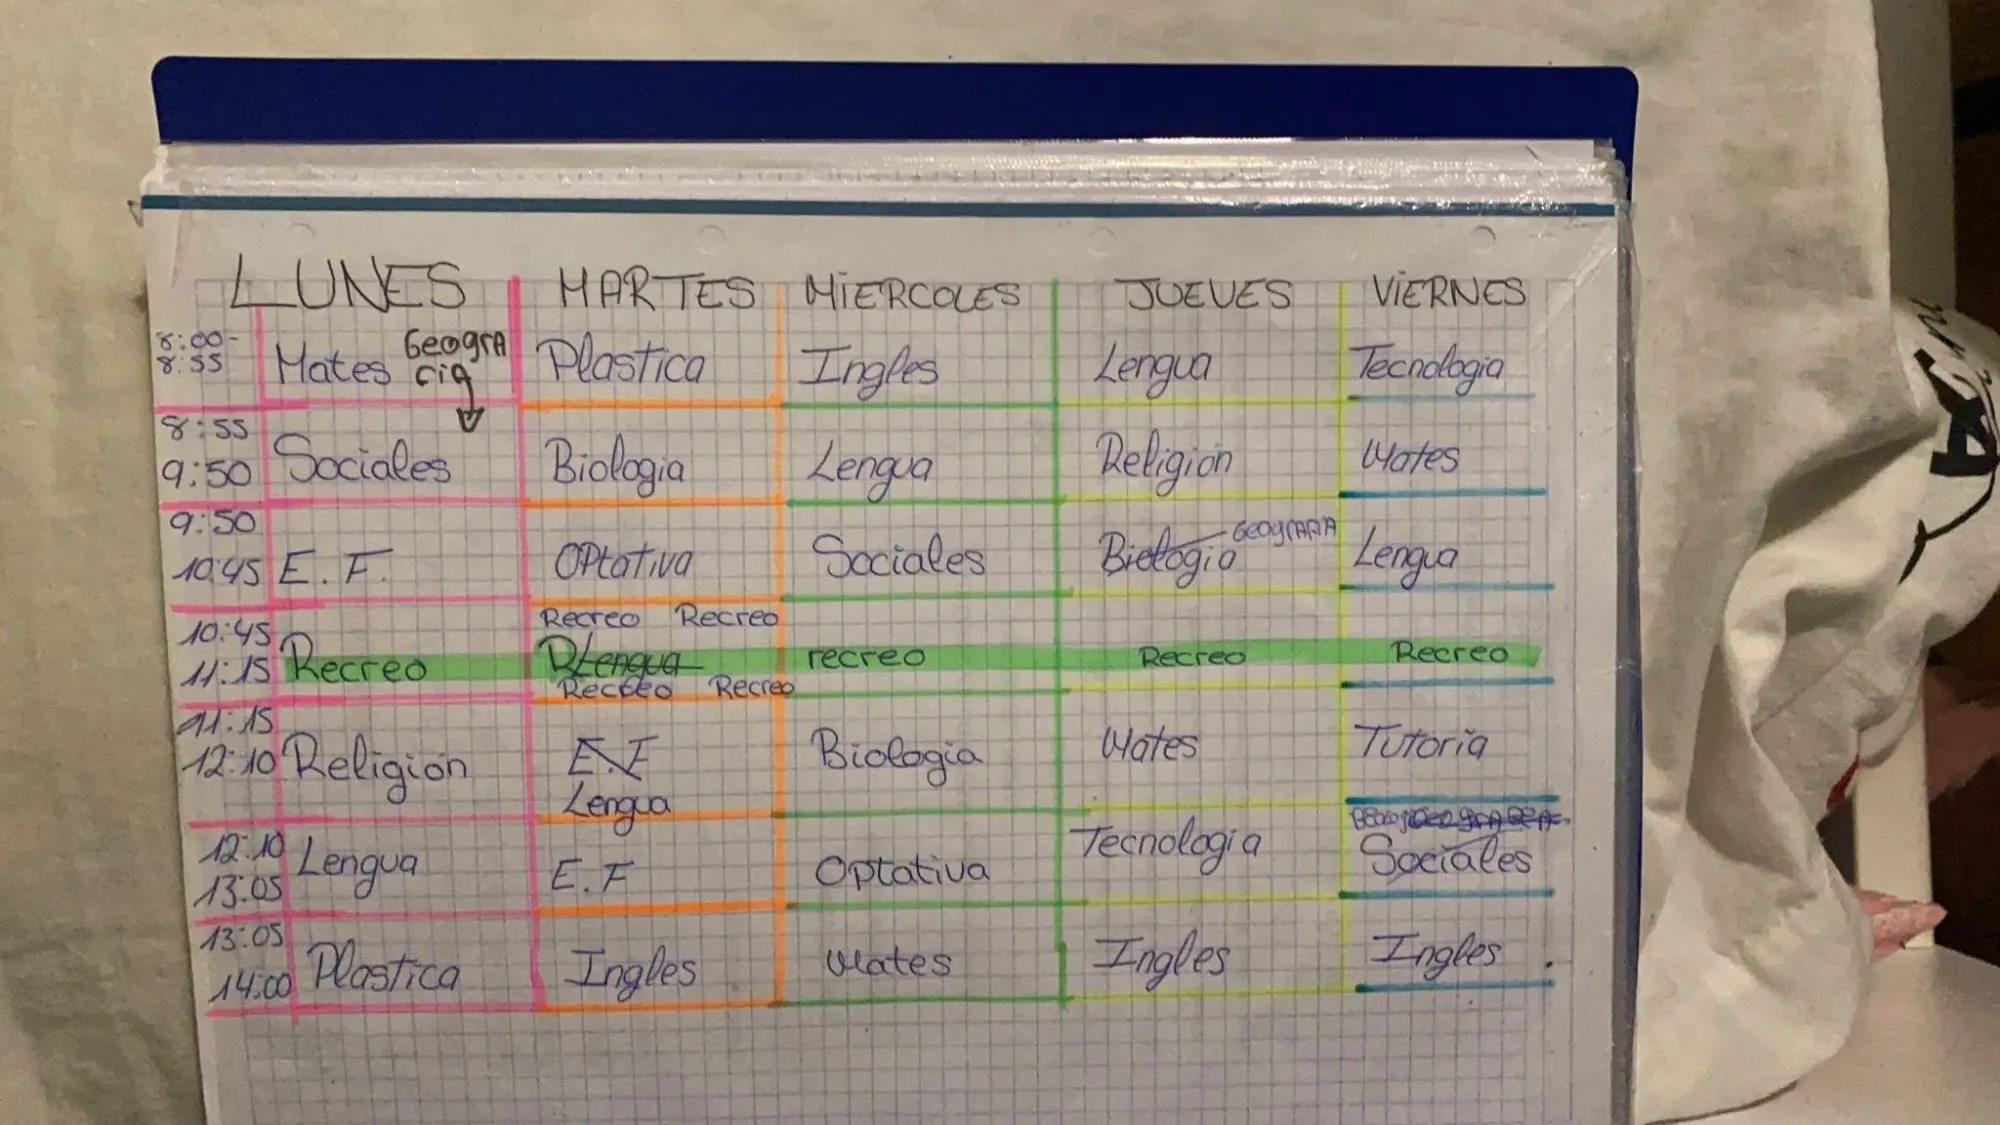 LUNES MARTES MIERCOLES JUEVES VIERNES
8:00-
8:55
Mates Geogra
fia
Plastica Ingles Lengua Tecnologia
8:55
9:50
Sociales Biologia Lengua Religion Mates
9:50
10:45
E. F. OPtativa Sociales Biologia GeografiA Lengua
Recreo Recreo
10:45
11:15
Recreo Lengua recreo Recreo Recreo
Recreo Recreo
11:15
12:10
Religion E.F Biologia Mates Tutoria
Lengua
12:10
13:05
Lengua E.F Optativa Tecnologia Sociales
13:05
14:00
Plastica Ingles Mates Ingles Ingles